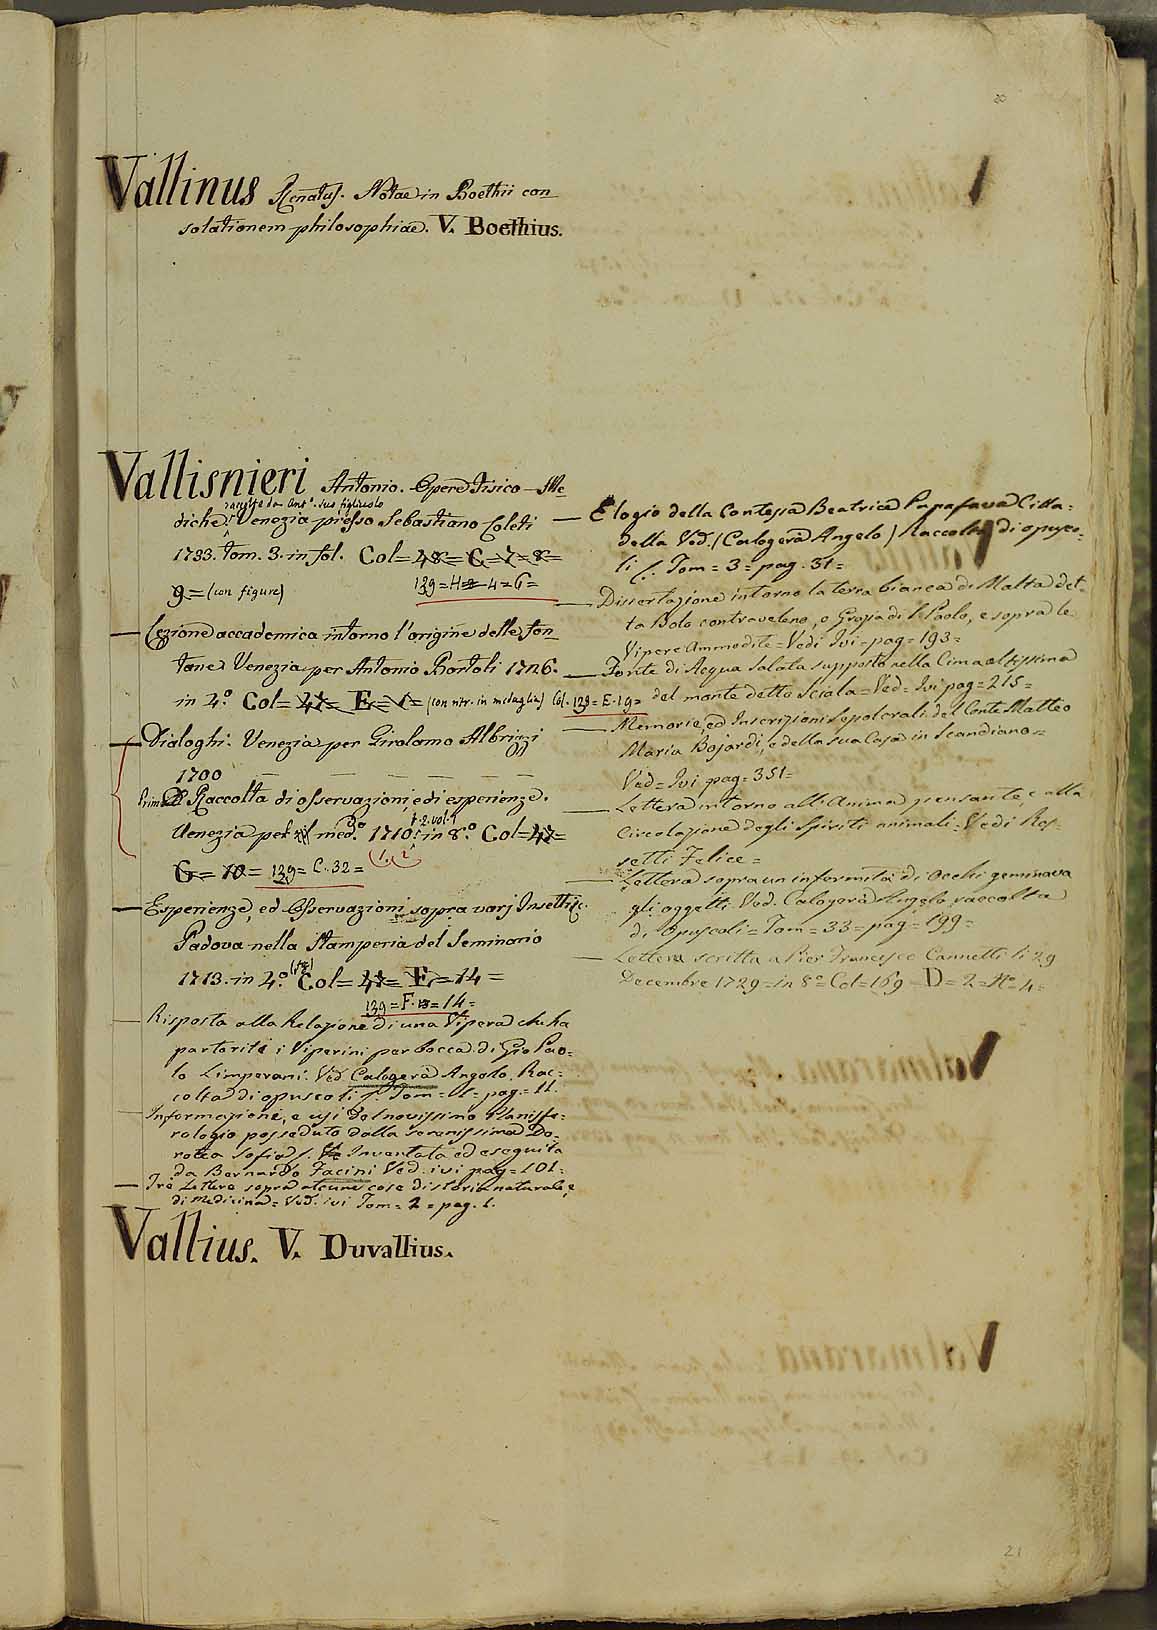 Vallinus Renatus. Notae in Boethii con
solationem philosophiae. V. Boethius.
Vallisnieri Antonio. Opere Fisico-Me
raccolte da Ant.° suo figliuolo
diche. Venezia presso Sebastiano Coleti
1733. tom. 3. in fol. Col= 48= G=7=8=
9= (con figure) 139=H=4=6=
— Lezione accademica intorno l'origine delle fon
tane, Venezia per Antonio Bortoli 1726.
in 4.° Col= 47= E= (con ritr. in medaglia) Col. 139= E. 19=
— Dialoghi. Venezia per Girolamo Albrizzi
1700 — — — — — —
Prima Raccolta di osservazioni, e di esperienze.
Venezia per med.° 1710. in 8.° Col= 47=
p. 2. vol. 1
1. 2
G= 10= 139= C. 32=
— Esperienze, ed Osservazioni sopra varj Insetti &c.
Padova nella Stamperia del Seminario
1713. in 4.° Col= 47= E=14=
139=F. 14=
— Risposta alla Relazione di una Vipera che ha
partoriti i Viperini per bocca di Gio Pao=
lo Limperani. Ved. Calogerà Angelo. Rac=
colta di opuscoli Tom= 1= pag= 11.
— Informazione, e usi del novissimo Planisfe=
rologio posseduto dalla serenissima Do=
rotea Sofia Inventata ed eseguita
da Bernardo Facini Ved. ivi pag= 101=
— Tre Lettere sopra alcune cose di storia naturale, e
di Medicina= Ved. ivi Tom= 2= pag. 1.
Vallius. V. Duvallius.
— Elogio della Contessa Beatrice Papafava Citta=
della Ved. (Calogerà Angelo) Raccolta di opusco=
li Tom= 3= pag. 31=
— Dissertazione intorno la terra bianca di Malta det=
ta Bolo contraveleno, o Grazia di S. Paolo, e sopra le
Vipere Ammodite= Vedi Ivi= pag= 193=
— Fonte di Acqua Salata supposta nella Cima altissima
del monte detto Sciala= Ved= Ivi pag= 215=
— Memorie, ed Inscrizioni Sepolcrali del Conte Matteo
Maria Bojardi, e della sua Casa in Scandiano=
Ved= Ivi pag= 351=
— Lettera intorno all'Anima pensante, e alla
Circolazione degli Spiriti animali= Vedi Ros=
setti Felice=
— Lettera sopra un infermità di Occhi geminava
gli oggetti. Ved. Calogerà Angelo raccolta
di Opuscoli= Tom= 33= pag= 199=
— Lettera scritta a Pier Francesco Cannetti li 29
Decembre 1729= in 8° Col= 169= D= 2= N° 4=
21